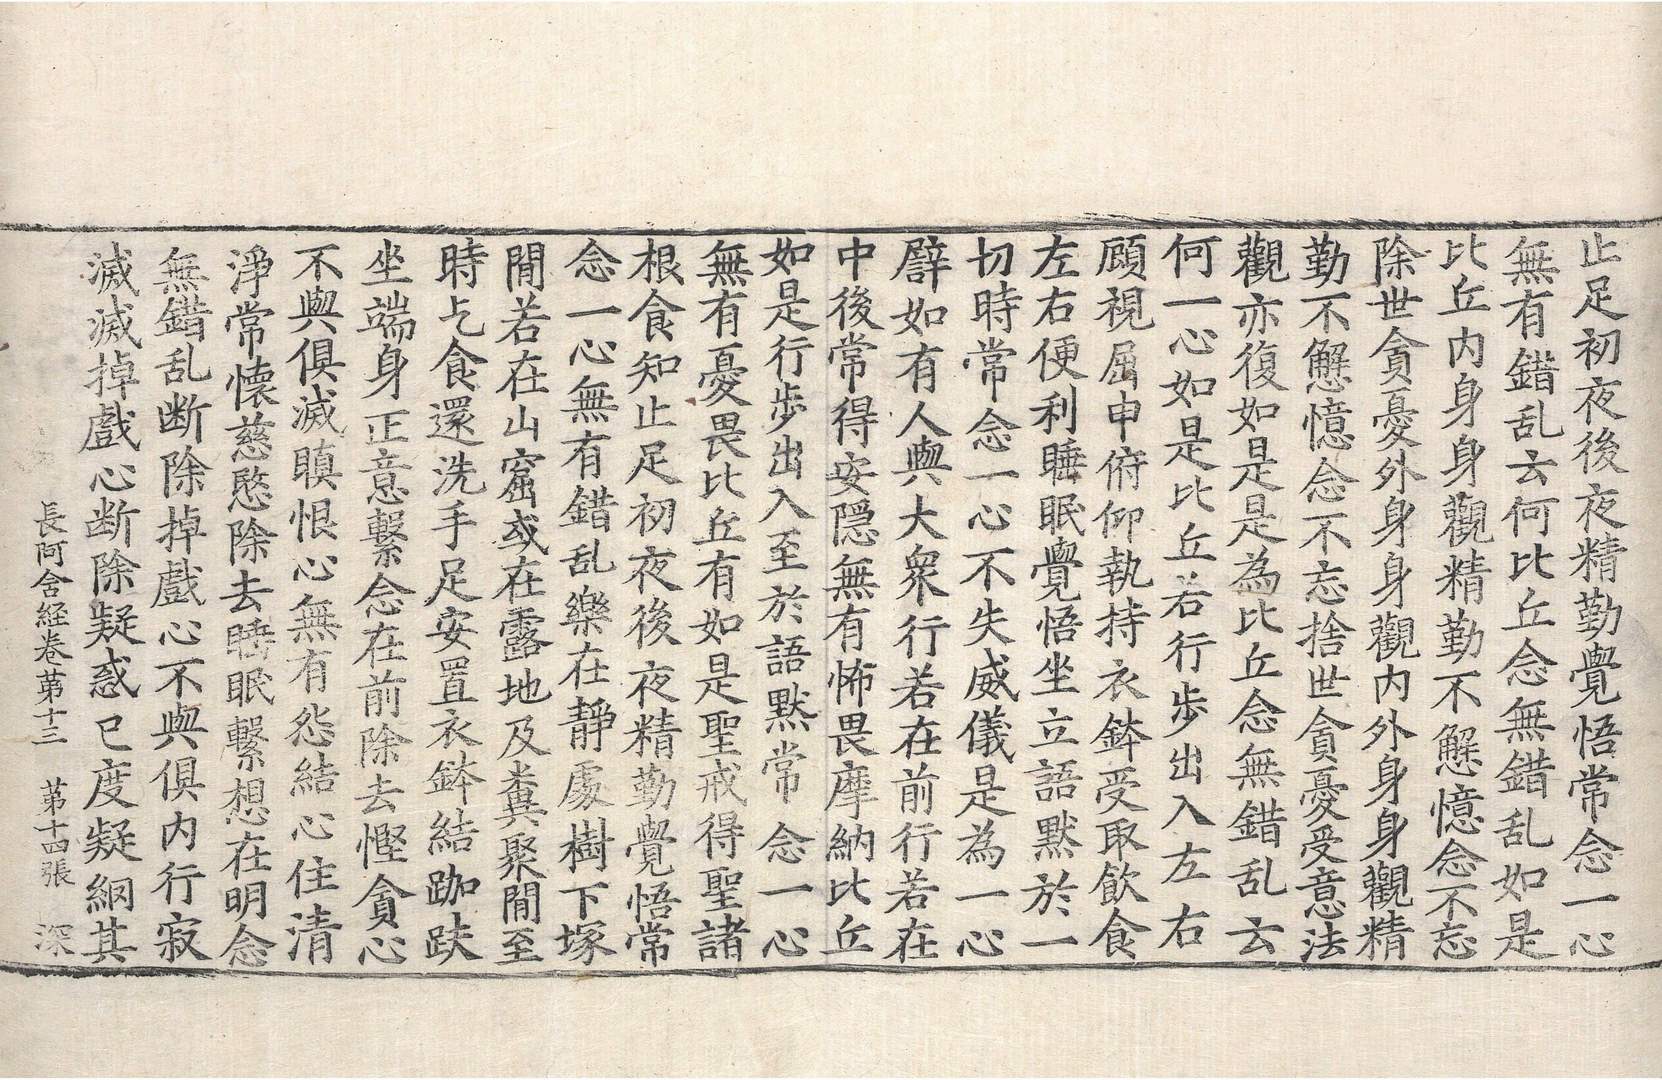 止足初夜後夜精勤覺悟常念一心
無有錯乱云何比丘念無錯乱如是
比丘内身身觀精勤不懈憶念不忘
除世貪憂外身身觀内外身身觀精
勤不懈憶念不忘捨世貪憂受意法
觀亦復如是是為比丘念無錯乱云
何一心如是比丘若行步出入左右
顧視屈申俯仰執持衣鉢受取飲食
左右便利睡眠覺悟坐立語默於一
切時常念一心不失威儀是為一心
譬如有人與大衆行若在前行若在
中後常得安隱無有怖畏摩納比丘
如是行步出入至於語默常念一心
無有憂畏比丘有如是聖戒得聖諸
根食知止足初夜後夜精勤覺悟常
念一心無有錯乱樂在靜處樹下塚
間若在山窟或在露地及糞聚間至
時乞食還洗手足安置衣鉢結跏趺
坐端身正意繫念在前除去慳貪心
不與俱滅瞋恨心無有怨結心住清
淨常懐慈愍除去睡眠繫想在明念
無錯乱断除掉戲心不與俱内行寂
滅滅掉戲心断除疑惑已度疑網其
長阿含経卷第十三　第十四張　深